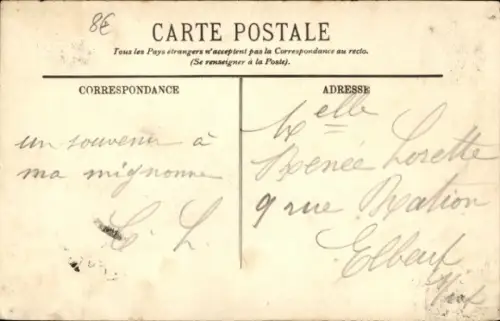 8€
CARTE POSTALE
Tous les Pays étrangers n'acceptent pas la Correspondance au recto.
(Se renseigner à la Poste).
CORRESPONDANCE
ADRESSE
un souvenir à
ma mignonne
L. L.
Melle
Renée Lorette
9 rue
Elbeuf